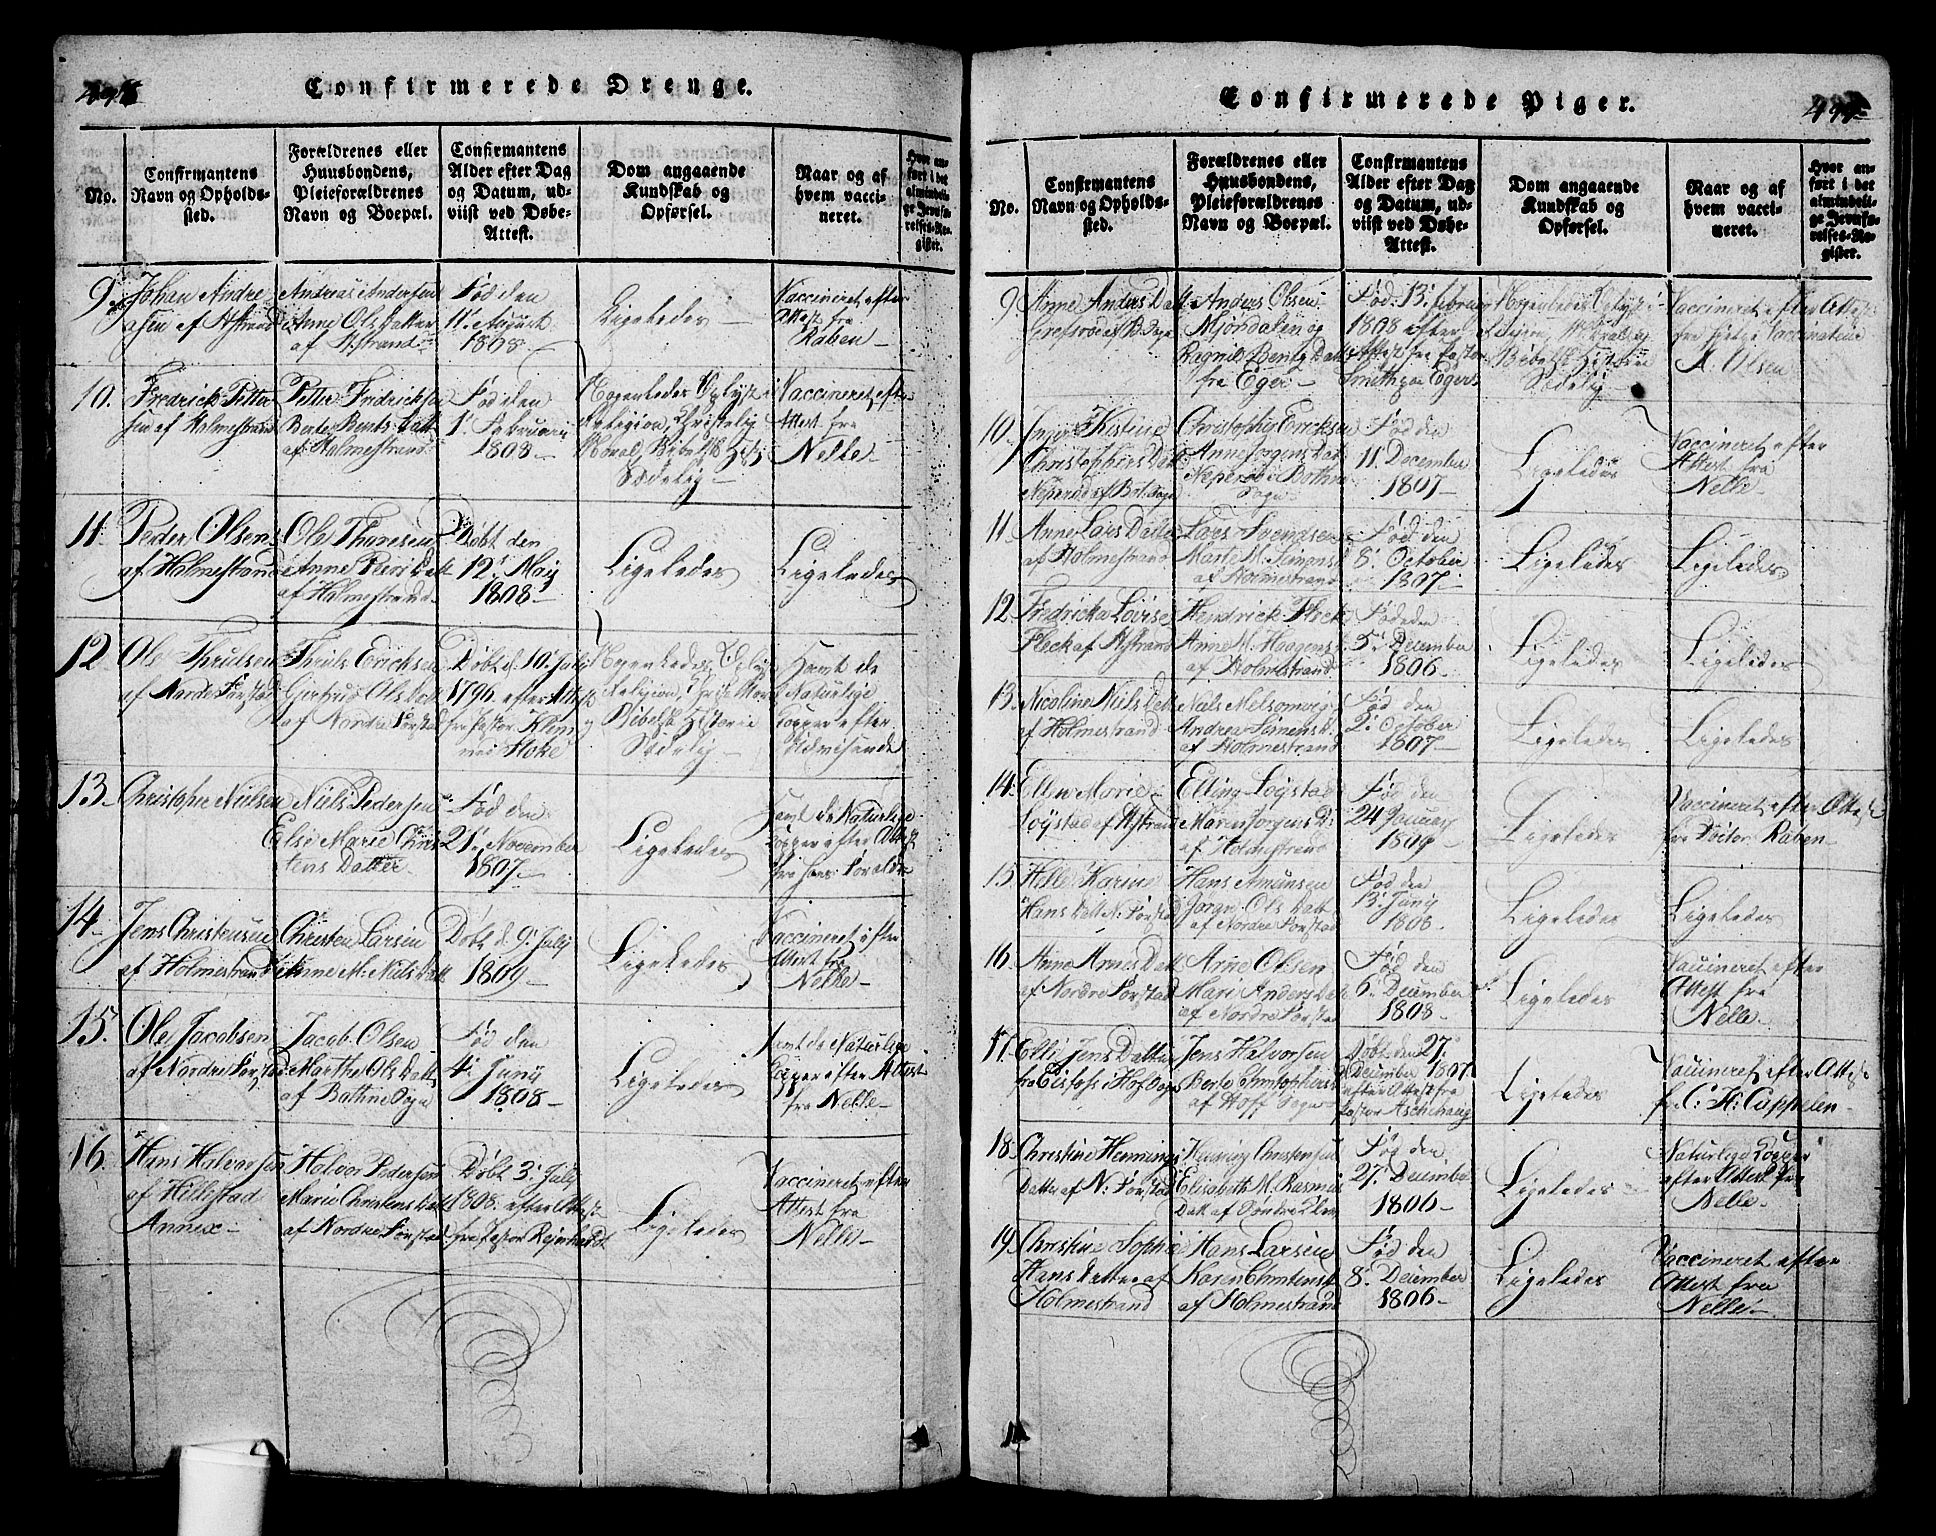 Confirmerede Drenge.
No.
Confirmantens
Navn og Opholds-
sted.
Forældrenes eller
Huusbondens,
Pleieforældrenes
Navn og Boepæl.
Confirmantens
Alder efter Dag
og Datum, ud-
viist ved Døbe-
Attest.
Dom angaaende
Kundskab og
Opførsel.
Naar og af
hvem vacci-
neret.
Hvor an-
ført i det
almindeli-
ge Jevnfø-
relses-Re-
gister.
9
Johan Andre
asen af Astrand
Andreas Andersen
Anne Ols Datter
af Astrand
Fød den
11' August
1808
Ligeledes
Vaccineret efter
Attest fra
Raben
10.
Fredrick Petter
sen af Holmestrand
Petter Fredricksen
Berte Bents Datt
af Holmestrand
Fød den
1' Februarii
1808
Nogenledes Oplyst i
Religion, Christelig
Moral, Bibelsk Hist:
Sædelig
Vaccineret efter
Attest fra
Nelle
11.
Peder Olsen
af Holmestrand
Ole Thoresen
Anne Peers Datt
af Holmestrand
Døbt den
12' Maij
1808
Ligeledes
Ligeledes
12
Ole Thrulsen
af Nordre Forstad
Thruls Ericksen
Giertrud Ols Datt
af Nordre Forstad
Døbt d. 10' Julij
1796 efter Attest
fra Pastor Klem
med Hoke
Nogenledes Oplyst
Religion, Christ Mor
Bibelsk Historie
Sædelig
Havt de
Naturlige
Kopper efter
Udvisende
13
Christopher Nielsen
Niels Pedersen
Else Marie Chris
tens Datter
Fød den
21' November
1807
Ligeledes
Havt de Naturlige
Kopper efter Attest
fra hans Forældre
14
Jens Christensen
af Holmestrand
Christen Larsen
Anne M. Niels Datt
Døbt d. 9' Julij
1809
Ligeledes
Vaccineret efter
Attest fra
Nelle
15.
Ole Jacobsen
af Nordre Forstad
Jacob Olsen
Marthe Ols Datt
af Bothne Sogn
Fød den
4' Junij
1808
Ligeledes
Havt de Naturlige
Kopper efter Attest
fra Nelle
16.
Hans Halvorsen
af Hillestad
Annex
Halvor Pedersen
Marie Christens Datt
af Nordre Forstad
Døbt 3' Julij
1808 efter Attest
fra Pastor Reinhardt
Ligeledes
Vaccineret efter
Attest fra
Nelle
Confirmerede Piger.
No.
Confirmantens
Navn og Opholds-
sted.
Forældrenes eller
Huusbondens,
Pleieforældrenes
Navn og Boepæl.
Confirmantens
Alder efter Dag
og Datum, ud-
viist ved Døbe-
Attest.
Dom angaaende
Kundskab og
Opførsel.
Naar og af
hvem vacci-
neret.
Hvor an-
ført i det
almindeli-
ge Jevnfø-
relses-Re-
gister.
9
Anne Anders Datt
Anders Olsen
Mjøndalen og
Ragnil Bents Datt
fra Eger
Fød 13' Februar
1808 efter
Attest fra Pastor
Smith paa Eger
Nogenledes Oplyst i
Religion, Moral og
Bibelsk Historie
Sædelig
Vaccineret efter Attest
fra Vaccinateur
A. Olsen
10
Inger Kistine
Christophers Datt
Neperød af Bot. Sogn
Christopher Ericksen
Anne Jorgens Dat
Neperød i Bothne
Sogn
Fød den
11' December
1807
Ligeledes
Vaccineret efter
Attest fra
Nelle
11
Anne Lars Datter
af Holmestrand
Lars Svendsen
Marte M. Simons D
af Holmestrand
Fød den
8' October
1807
Ligeledes
Ligeledes
12
Fredricka Lovise
Fleck af Astrand
Hendrick Fleck
Anne M. Haagens
af Holmestrand
Fød den
5' December
1806
Ligeledes
Ligeledes
13.
Nicoline Niels Datt
af Holmestrand
Niels Melsomvig
Andrea Simensd.
af Holmestrand
Fød den
2' October
1807
Ligeledes
Ligeledes
14.
Ellen Marie
Løystad af Astrand
Elling Løystad
Maren Jorgens D.
af Holmestrand
Fød den
24 Januarij
1809
Ligeledes
Vaccineret efter Attest
fra Doctor Raben
15
Helle Karine
Hans Datt N. Forstad
Hans Amunsen
Jorgn. Ols Datt
af Nordre Forstad
Fød den
13' Junij
1808
Ligeledes
Ligeledes
16.
Anne Arnes Datt
af Nordre Forstad
Arne Olsen
Mari Anders Datt
af Nordre Forstad
Fød den
6' December
1808
Ligeledes
Vaccineret efter
Attest fra
Nelle
17.
Jens Datter
Jens Halvorsen
Berte Christophers
af Hoff Sogn
Døbt den 27'
December 1807
efter Attest fra
Pastor Aschehoug
Ligeledes
Vaccineret efter Attest
fr C. H. Cappelen
18.
Christine Hennings
Datter af N. Forstad
Henning Christensen
Elisabeth M. Rasmus
Datt af
Fød den
27' December
1806
Ligeledes
Naturlige Kopper
efter Attest fra
Nelle
19.
Christine Sophie
Hans Datter af
Holmestrand
Hans Larsen
Karen Christensd
af Holmestrand
Fød den
8' December
1806
Ligeledes
Vaccineret efter
Attest fra
Nelle